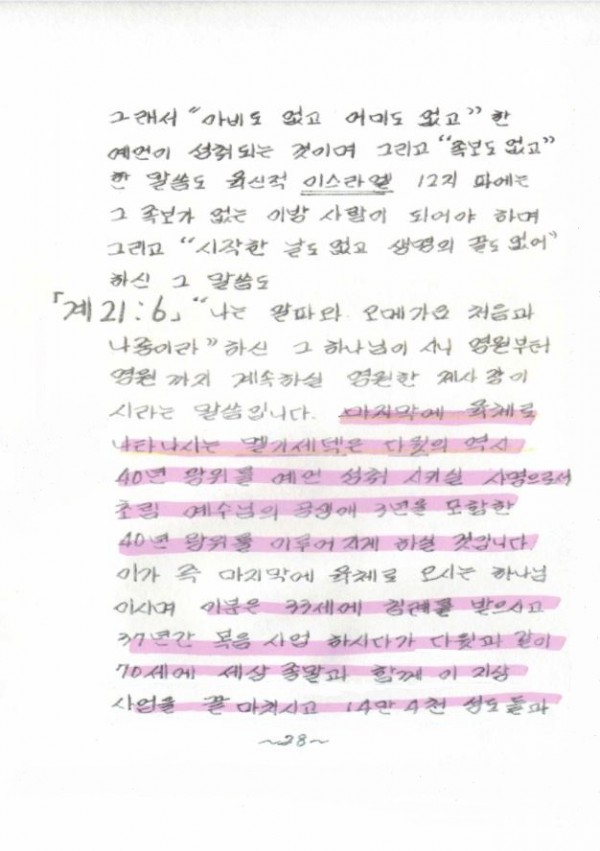 그래서 "아비도 없고 어미도 없고" 한
예언이 성취되는 것이며 그리고 "족보도 없고"
한 말씀도 육신적 이스라엘 12지 파에는
그 족보가 없는 이방 사람이 되어야 하며
그리고 "시작한 날도 없고 생명의 끝도 없어"
하신 그 말씀도
「계 21:6」 "나는 알파와 오메가요 처음과
나중이라" 하신 그 하나님이 시니 영원부터
영원 까지 계속하실 영원한 제사 장이
시라는 말씀입니다. 마지막에 육체로
나타나시는 멜기세덱은 다윗의 역사
40년 왕위를 예언 성취 시키실 사명으로서
초림 예수님의 공생애 3년을 포함한
40년 왕위를 이루어 지게 하실 것입니다.
이가 즉 마지막에 육체로 오시는 하나님
이시며 이분은 33세에 침례를 받으시고
37년간 복음 사업 하시다가 다윗과 같이
70세에 세상 종말과 함께 이 지상
사업을 끝 마치시고 14만 4천 성도들과
~28~